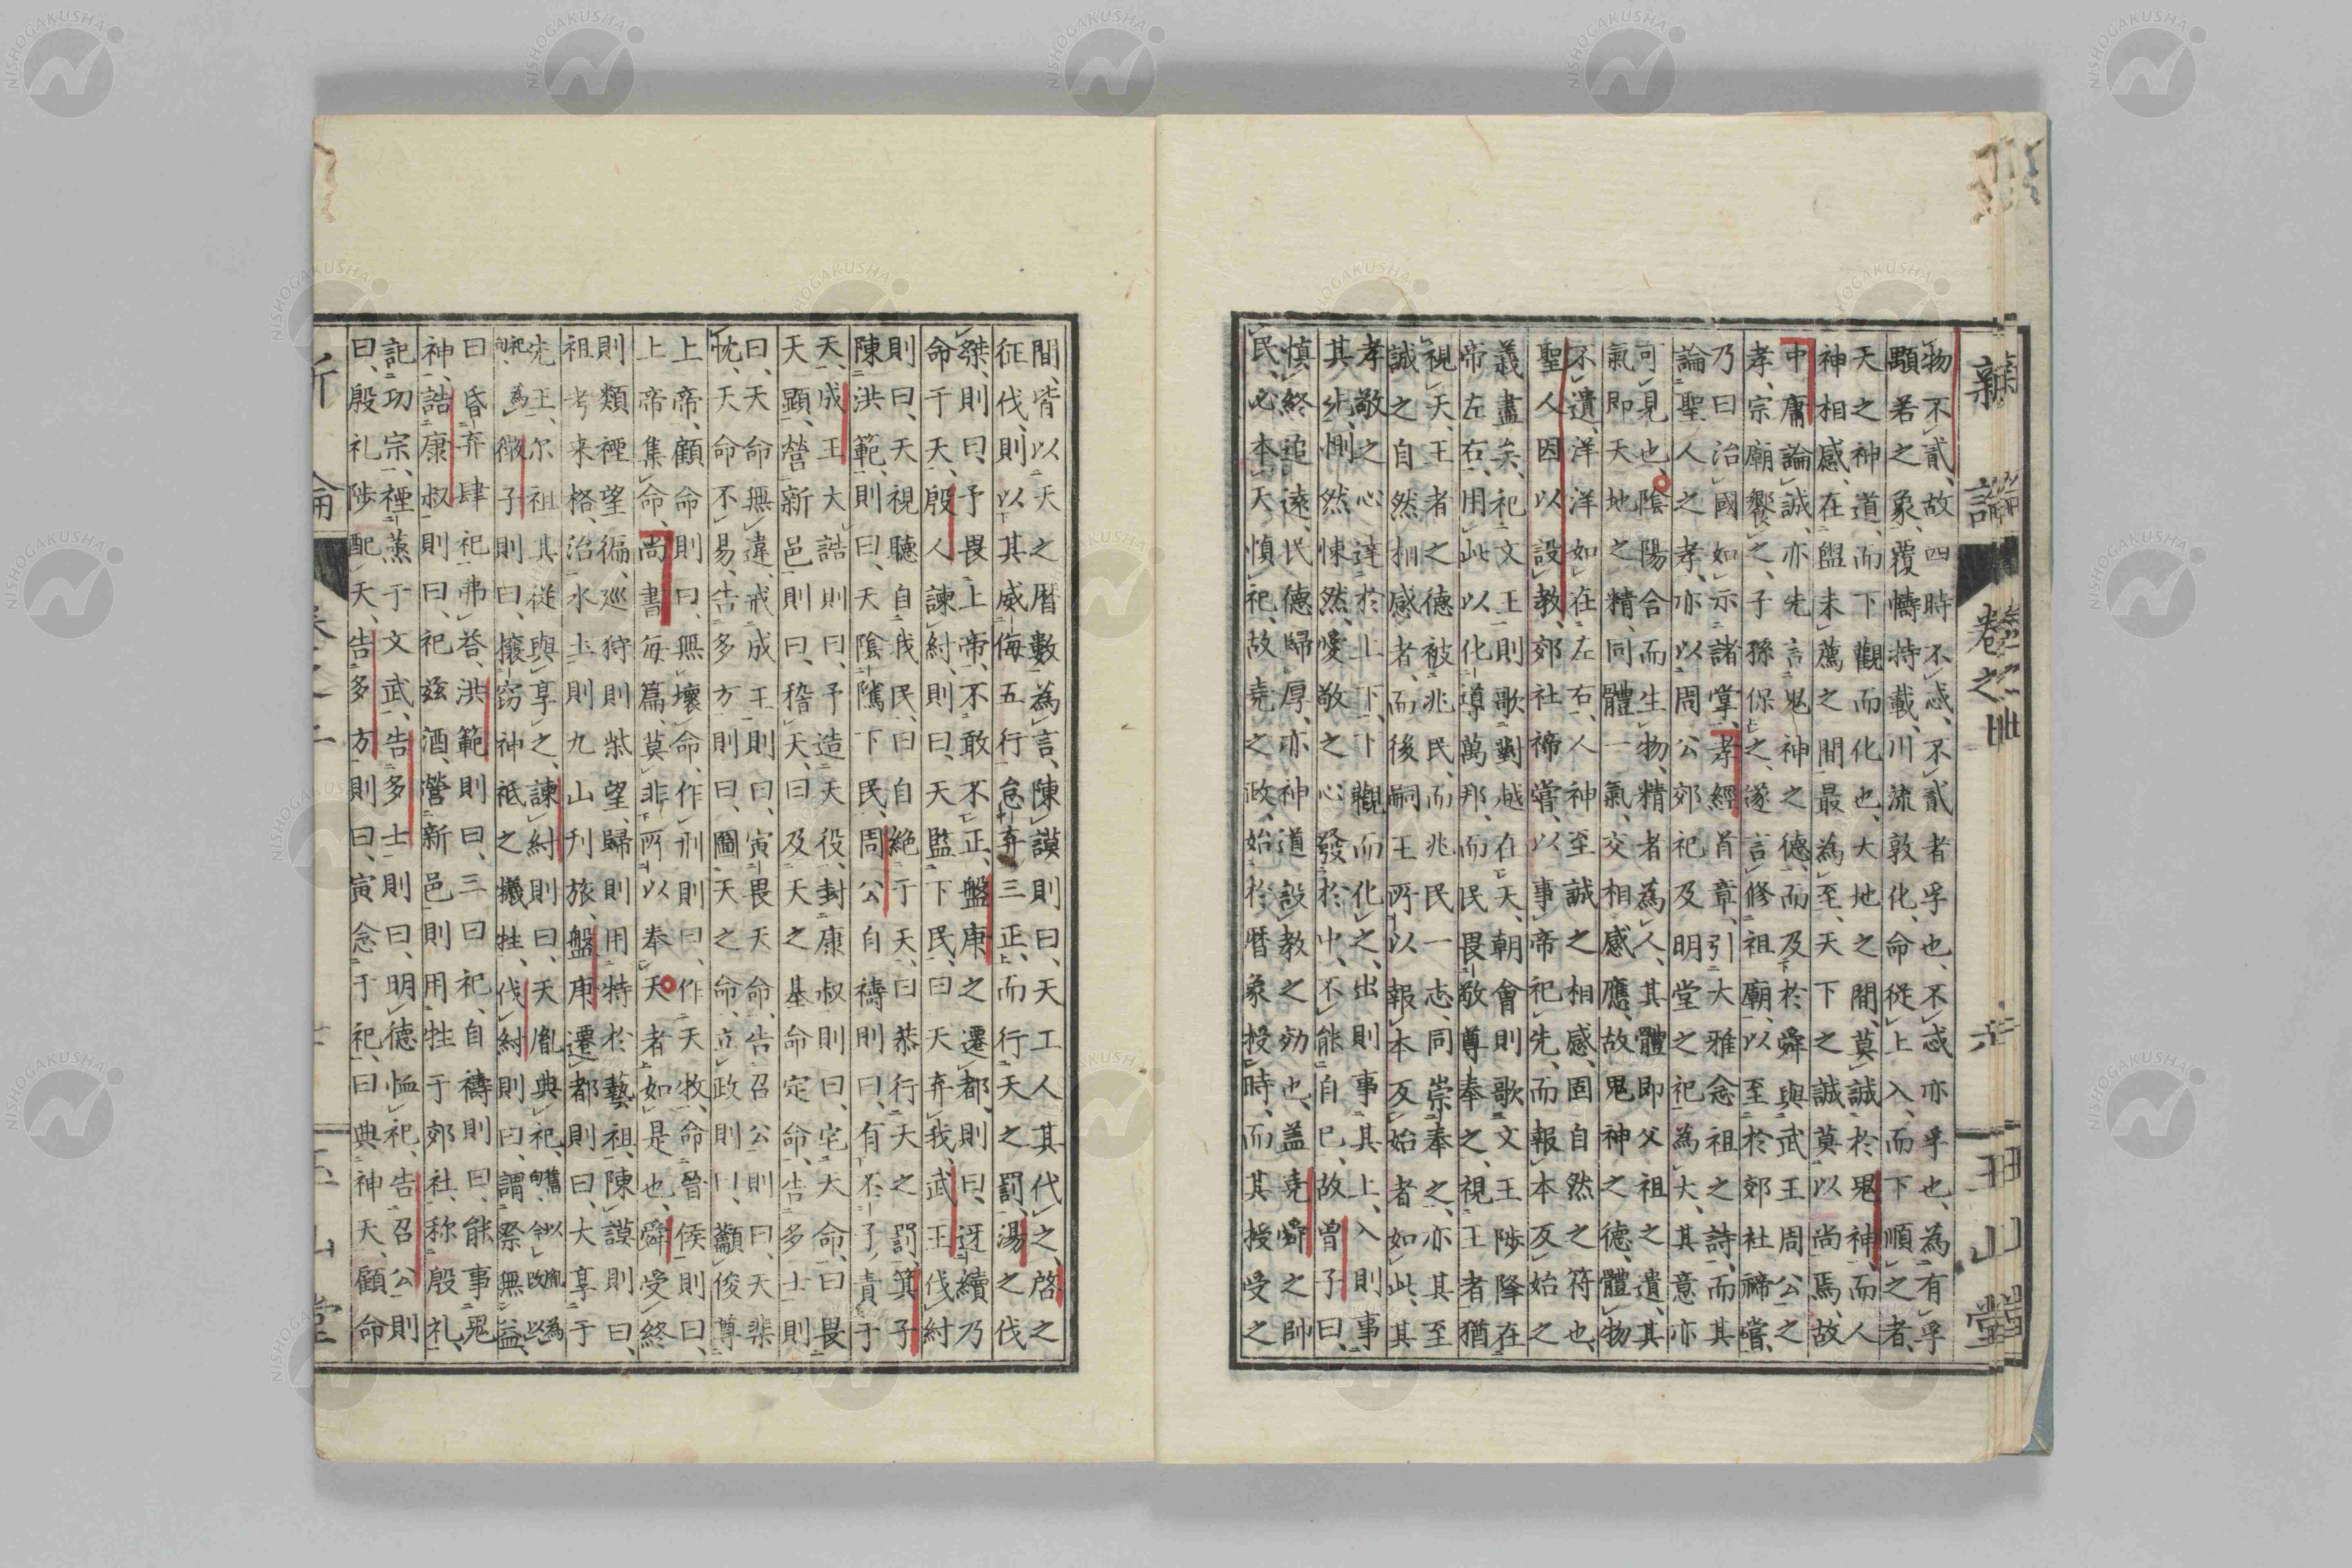 物不貳、故四時不忒、不貳者孚也、不忒亦孚也、為有孚
顒若之象、覆幬持載、川流敦化、命從上入、而下順之者、
天之神道、而下觀而化也、大地之間、莫誠於鬼神而人
神相感、在盥未薦之間最為至、天下之誠莫以尚焉、故
中庸論誠、亦先言鬼神之德、而及於舜與武王周公之
孝、宗廟饗之、子孫保之、遂言修祖廟、以至於郊社禘嘗、
乃曰治國如示諸掌、孝經首章、引大雅念祖之詩、而其
論聖人之孝、亦以周公郊祀及明堂之祀為大、其意亦
可見也、陰陽合而生物、精者為人、其體即父祖之遺、其
氣即天地之精、同體一氣、交相感應、故鬼神之德、體物
不遺、洋洋如在左右、人神至誠之相感、固自然之符也、
聖人因以設教、郊社禘嘗、以事帝祀先、而報本反始之
義盡矣、祀文王則歌對越在天、朝會則歌文王陟降在
帝左右、用此以化導萬邦、而民畏敬尊奉之、視王者猶
視天、王者之德被兆民、而兆民一志、同崇奉之、亦其至
誠之自然相感者、而後嗣王所以報本反始者如此、其
孝敬之心、達於上下、下觀而化之、出則事其上、入則事
其先、惻然悚然、愛敬之心發於中、不能自已、故曾子曰、
慎終追遠、民德歸厚、亦神道設教之効也、蓋堯舜之帥
民、必本天慎祀、故堯之政、始於曆象授時、而其授受之
辯 論 卷之 玉山堂
間、皆以天之曆數為言、陳謨則曰、天工人其代之、啓之
征伐、則以其威侮五行、怠弃三正、而行天之罰、湯之伐
桀、則曰、予畏上帝、不敢不正、盤庚之遷都、則曰、迓續乃
命于天、殷人諫紂、則曰、天監下民、曰天弃我、武王伐紂
則曰、天視聽自我民、曰自絕于天、曰恭行天之罰、箕子
陳洪範、則曰、天陰隲下民、周公自禱則曰、有丕子責于
天、成王大誥則曰、予造天役、封康叔則曰、宅天命、曰畏
天顯、營新邑則曰、稽天、曰及天之基命定命、告多士則
曰、天命無違、戒成王則曰、寅畏天命、告召公則曰天棐
忱、天命不易、告多方則曰、圖天之命、立政則曰、籲俊尊
上帝、顧命則曰、無壞命、作刑則曰、作天牧、命晉侯則曰、
上帝集命、尚書每篇、莫非所以奉天者如是也、舜受終
則類禋望徧、巡狩則柴望、歸則用特於藝祖、陳謨則曰、
祖考来格、治水土則九山刊旅、盤庚遷都則曰、大享于
先王、尓祖其從與享之、諫紂則曰、天胤典祀、
微子則曰、攘窃神祇之犧牲、伐紂則曰、謂祭無益、
曰昏弃肆祀弗荅、洪範則曰、三曰祀、自禱則曰、能事鬼
神、誥康叔則曰、祀茲酒、營新邑則用牲于郊社、称殷礼、
記功宗、禋烝于文武、告多士則曰、明德恤祀、告召公則
曰、殷礼陟配天、告多方則曰、寅念于祀、曰典神天、顧命
新 論 堂